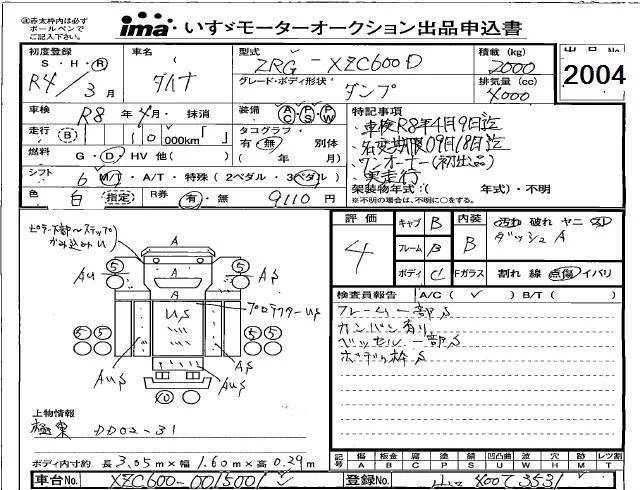 ㊟赤太枠内は必ず
ボールペンで
ご記入下さい。
ima いすゞモーターオークション出品申込書
初度登録
S・H・R
R4/3月
車名
ダイナ
型式
ZRG-XZC600D
グレード・ボディ形状
ダンプ
積載(kg)
2000
排気量(cc)
4000
出品No
2004
車検 R8年4月・抹消
装備 AC PS PW
走行(B) 10 000km「 」
タコグラフ・ 有・無 別体
( 年 月)
燃料 G・D・HV 他( )
シフト 6 M/T・A/T・特殊(2ペダル・3ペダル)
色 白 (指定)
R券 有・無 9110円
特記事項
・車検R8年4月9日迄
・名変期限09月18日迄
・ワンオーナー(初出品)
・実走行
架装物年式:( 年式)・不明
※不明の場合は、不明に○をする。
ピラー
かみ込みU
A
A
A
5 5
AU
AS
US
プロテクターUS
5 5 5 5
AUS
AS
AUS
AUS
0
評価
4
キャブ B
フレーム B
ボディ C
内装 B
Fガラス
汚れ 破れ ヤニ
ダッシュA
割れ 線 点傷 イバリ
検査員報告 A/C( ✓ ) B/T( )
フレーム一部S
カンバン有り
ベッセル一部S
ボディ枠S
上物情報
極東 DD02-31
ボディ内寸約 長3.05m×幅1.60m×高0.29m
記号 傷 板金 腐 塗 錆 凹凸曲 波 穴 跡 レツ割
A B C P S U W H M T
車台No. XZC600-0015001
登録No. 400て3531